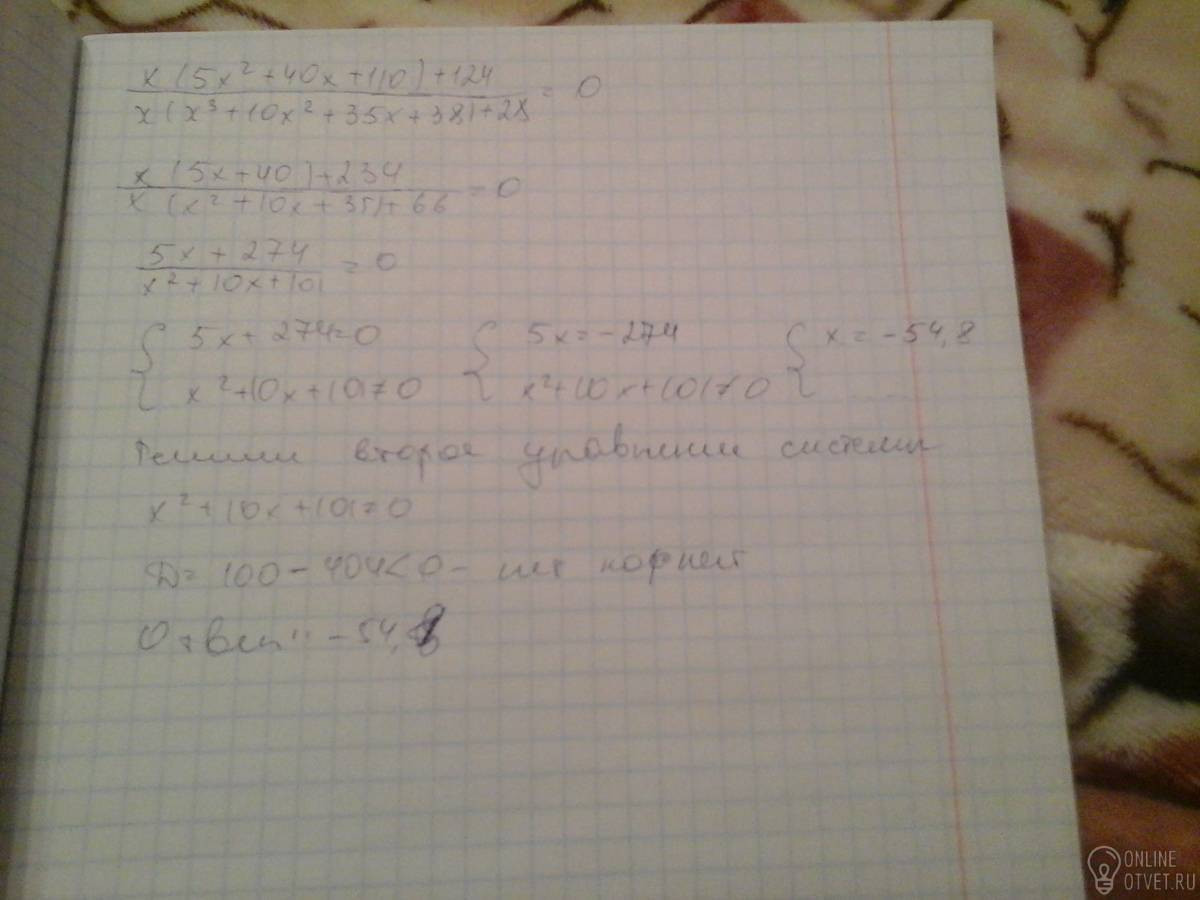 x(5x²+40x+110)+124
x(x³+10x²+35x+38)+28 = 0
x(5x+40)+234
x(x²+10x+35)+66 = 0
5x+274
x²+10x+101 = 0
{ 5x+274=0 { 5x=-274 { x=-54,8
x²+10x+101≠0 x²+10x+101≠0 ......
Решим второе уравнение системы
x²+10x+101=0
D=100-404<0- нет корней
Ответ: -54,8
ONLINE
OTVET.RU